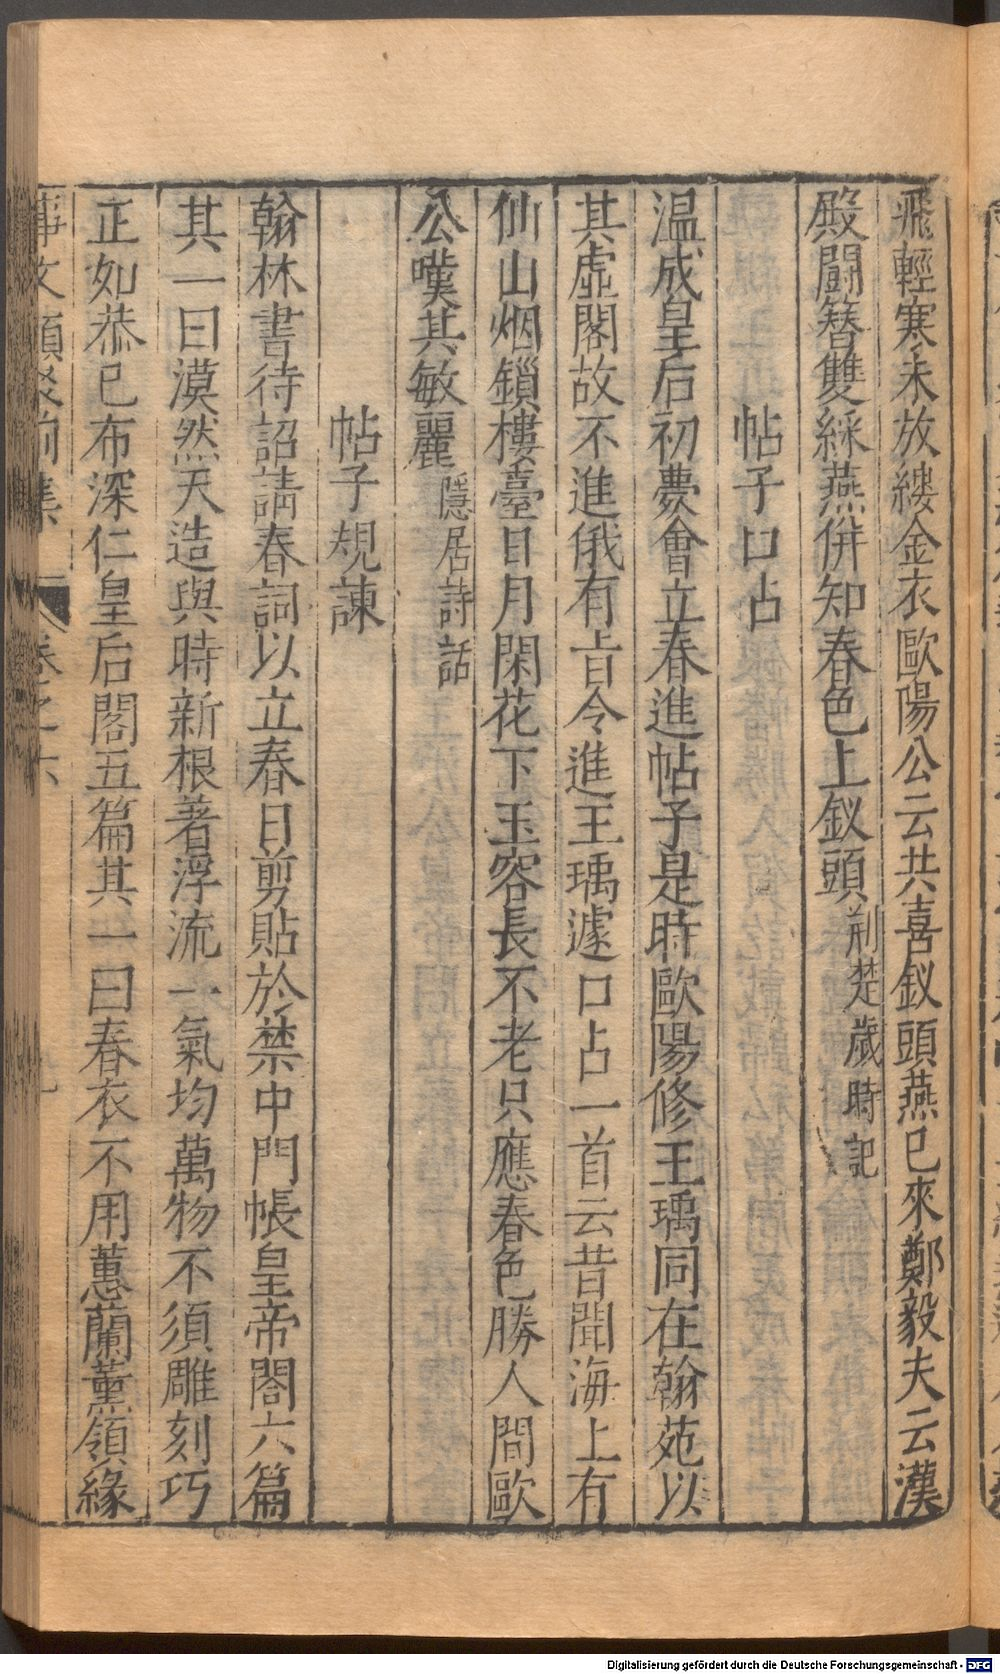 飛輕寒未放縷金衣歐陽公云共喜釵頭燕已來鄭毅夫云漢
殿鬪簪雙綵燕併知春色上釵頭荆楚歲時記
帖子口占
温成皇后初薨會立春進帖子是時歐陽修王瑀同在翰苑以
其虛閣故不進俄有旨令進王瑀遽口占一首云昔聞海上有
仙山烟鎖樓臺日月閑花下玉容長不老只應春色勝人間歐
公嘆其敏麗隱居詩話
帖子規諫
翰林書待詔請春詞以立春日剪貼於禁中門帳皇帝閤六篇
其一曰漠然天造與時新根著浮流一氣均萬物不須雕刻巧
正如恭已布深仁皇后閤五篇其一曰春衣不用蕙蘭薰領緣
事文類聚前集 卷之六
Digitalisierung gefördert durch die Deutsche Forschungsgemeinschaft - DFG